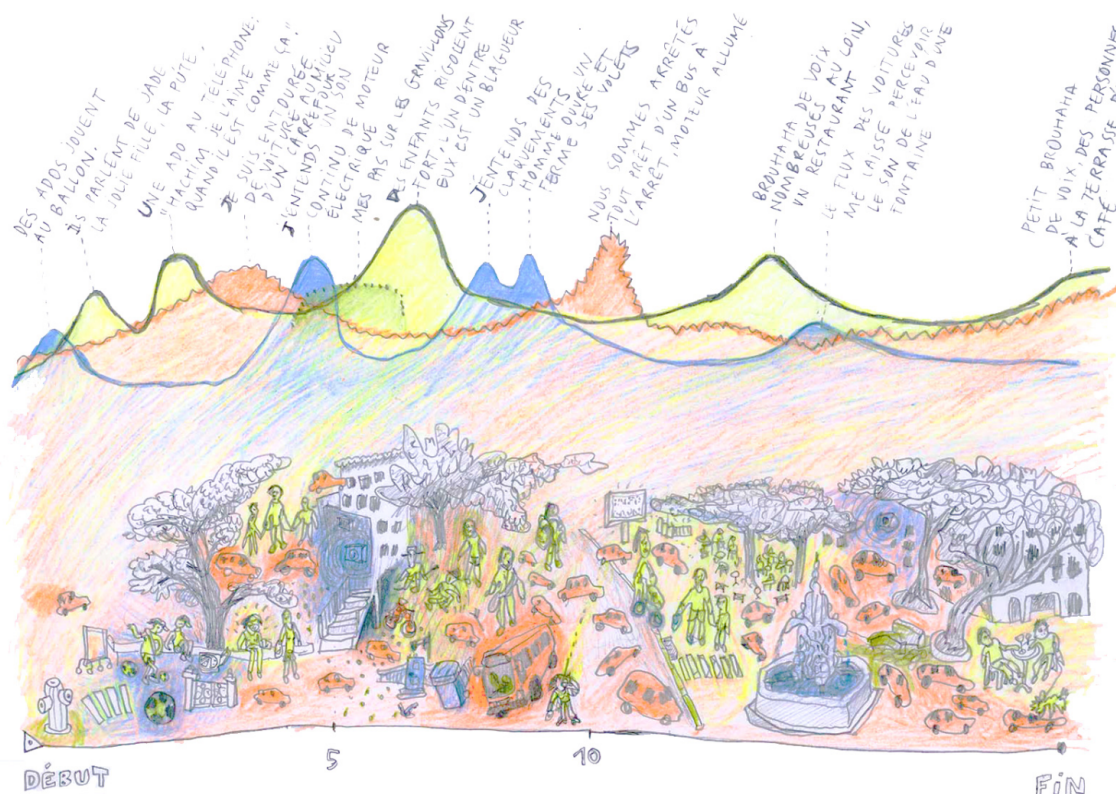 DES ADOS JOUENT
AU BALLON.
ILS PARLENT DE JADE,
LA JOLIE FILE. LA PUTE.
UNE ADO AU TÉLÉPHONE.
"HACHIM, JE L'AIME
QUAND IL EST COMME ÇA."
JE SUIS ENTOURÉE
DE VOITURE AU MILIEU
D'UN CARREFOUR
J'ENTENDS UN SON
CONTINU DE MOTEUR
ÉLECTRIQUE
MES PAS SUR LES GRAVILLONS
DES ENFANTS RIGOLENT
FORT, L'UN D'ENTRE
EUX EST UN BLAGUEUR
J'ENTENDS DES
CLAQUEMENTS
HOMME OUVRE UN
FERME SES VOLETS ET
NOUS SOMMES ARRÊTÉS
TOUT PRÊT D'UN BUS À
L'ARRÊT, MOTEUR ALLUMÉ
BROUHAHA DE VOIX
NOMBREUSES AU LOIN,
UN RESTAURANT
LE FLUX DES VOITURES
ME LAISSE PERCEVOIR
LE SON DE L'EAU D'UNE
FONTAINE
PETIT BROUHAHA
DE VOIX DES PERSONNES
À LA TERRASSE
CAFÉ
DÉBUT
5
10
FIN